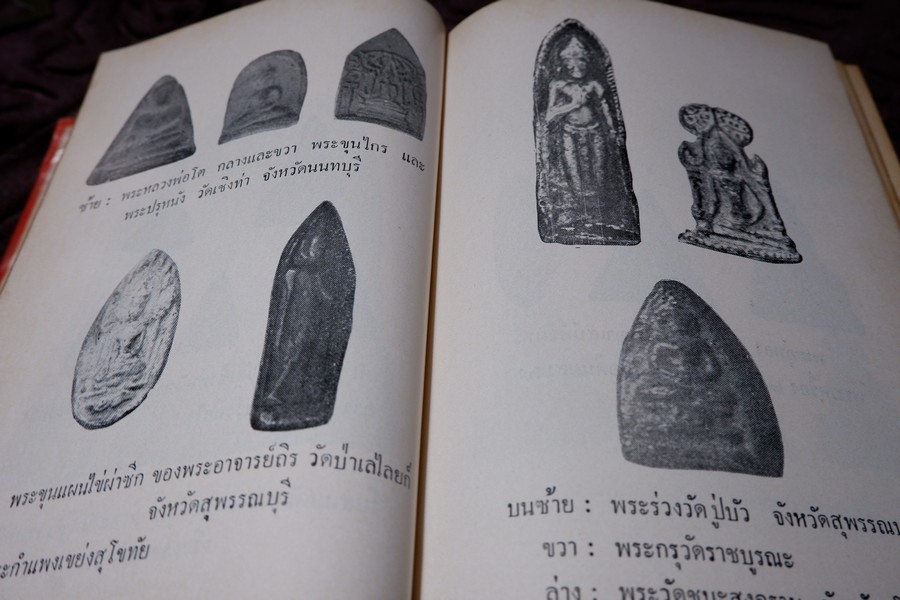 ซ้าย : พระหลวงพ่อโต กลางและขวา พระขุนไกร และ
พระปรุหนัง วัดเชิงท่า จังหวัดนนทบุรี
พระขุนแผนไข่ผ่าซีก ของพระอาจารย์ถิร วัดป่าเลไลยก์
จังหวัดสุพรรณบุรี
ะกำแพงเขย่งสุโขทัย
บนซ้าย : พระร่วงวัดปู่บัว จังหวัดสุพรรณบ
ขวา : พระกรุวัดราชบูรณะ
ล่าง : พระวัดชนะสงคราม